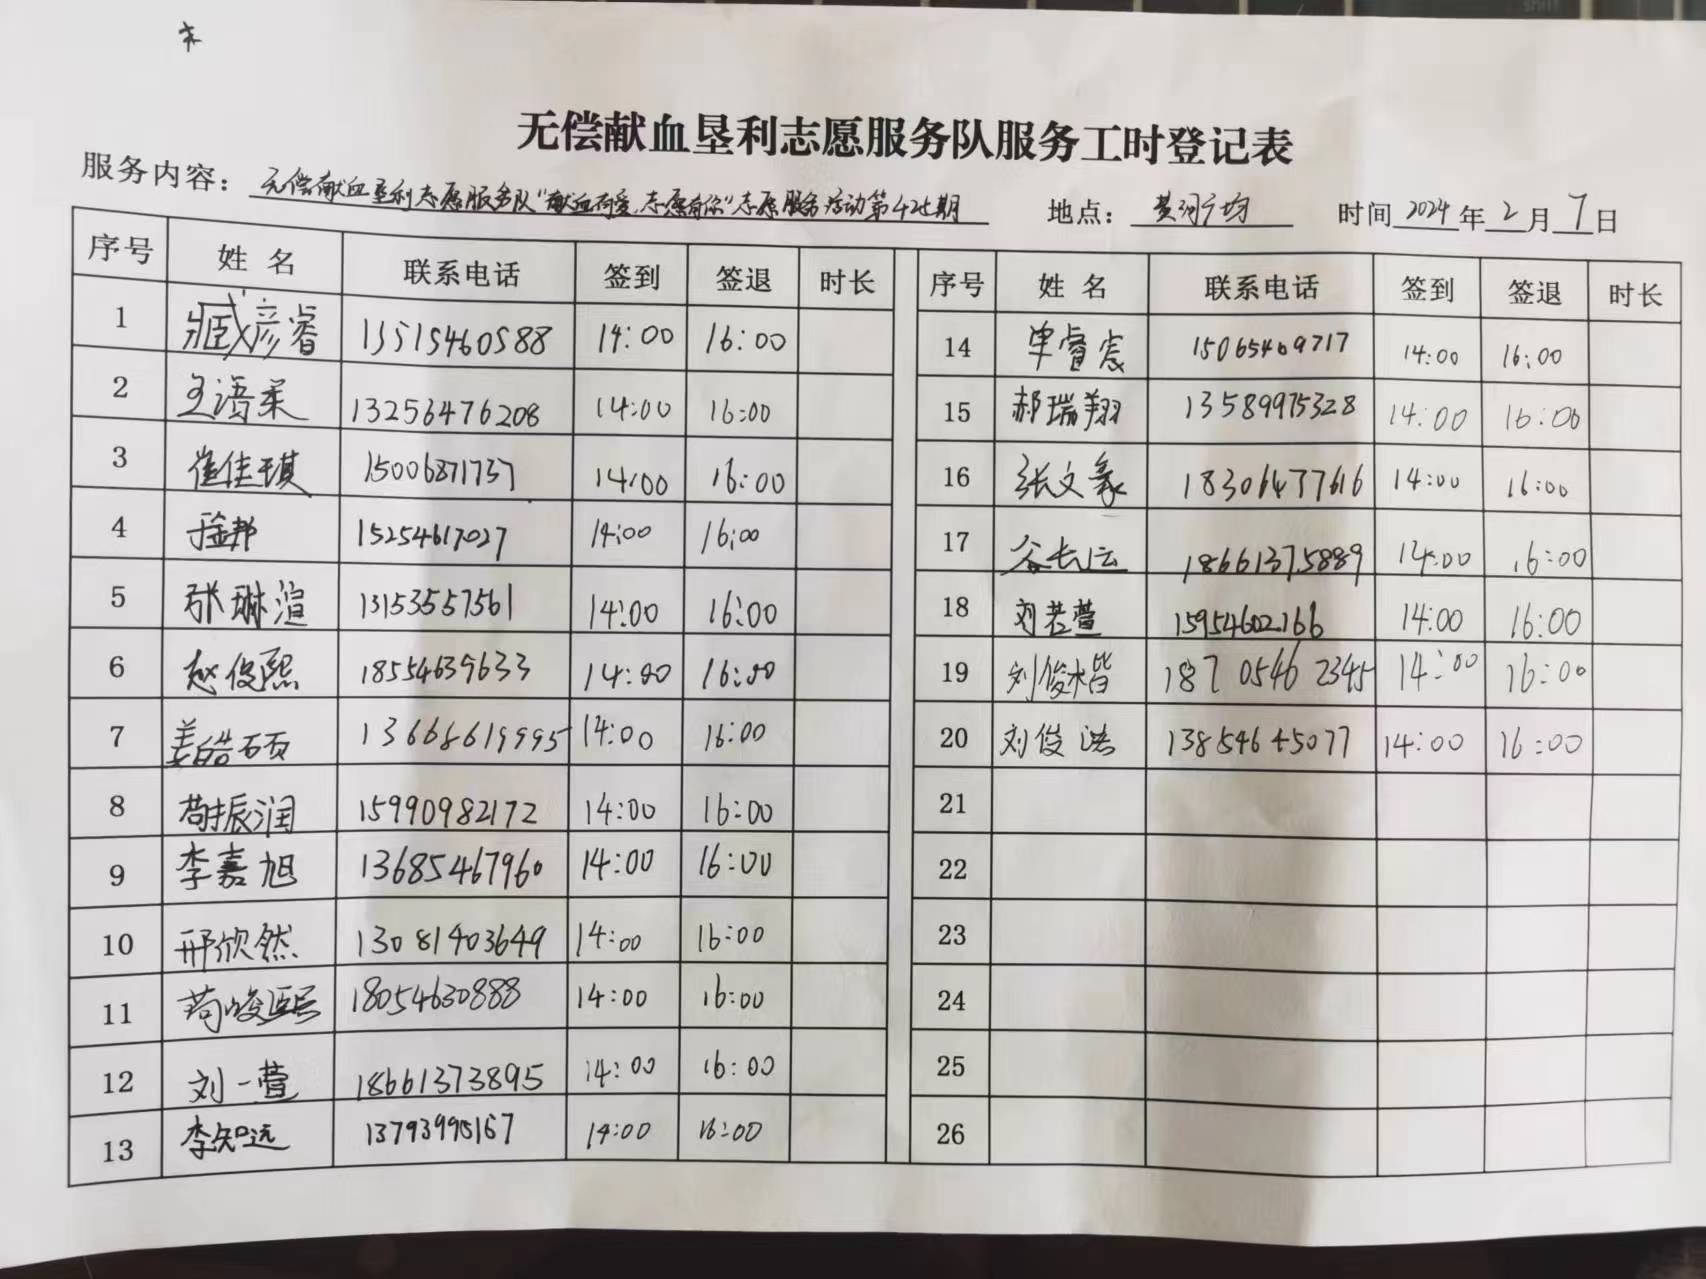 无偿献血垦利志愿服务队服务工时登记表
服务内容：无偿献血垦利志愿服务队"献血有爱，志愿有你"志愿服务活动第425期 地点：黄河广场 时间2024年2月7日
序号 姓名 联系电话 签到 签退 时长 序号 姓名 联系电话 签到 签退 时长
1 臧彦睿 13515460588 14:00 16:00 14 单睿宸 15065409717 14:00 16:00
2 王语柔 13256476208 14:00 16:00 15 郝瑞翔 13589975328 14:00 16:00
3 崔佳琪 15006871737 14:00 16:00 16 张文豪 18306477616 14:00 16:00
4 15254617027 14:00 16:00 17 谷长运 18661375889 14:00 16:00
5 张琳渲 13153557561 14:00 16:00 18 刘若萱 15954602166 14:00 16:00
6 赵俊熙 18554639633 14:00 16:00 19 刘俊楷 18705462345 14:00 16:00
7 姜皓硕 13668619995 14:00 16:00 20 刘俊洪 13854645077 14:00 16:00
8 苟振润 15990982172 14:00 16:00 21
9 李嘉旭 13685467960 14:00 16:00 22
10 邢欣然 13081403649 14:00 16:00 23
11 苟峻熙 18054630888 14:00 16:00 24
12 刘一萱 18661373895 14:00 16:00 25
13 李知远 13793995167 14:00 16:00 26